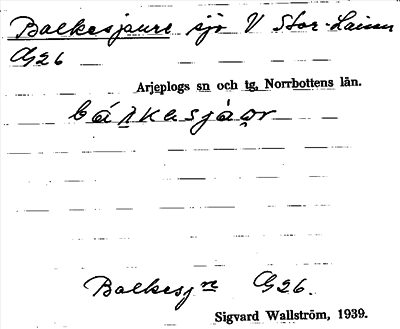 Balkesjaure sjö V Stor-Laisan
G26
Arjeplogs sn och tg, Norrbottens län.
Balkesj re G26.
Sigvard Wallström, 1939.